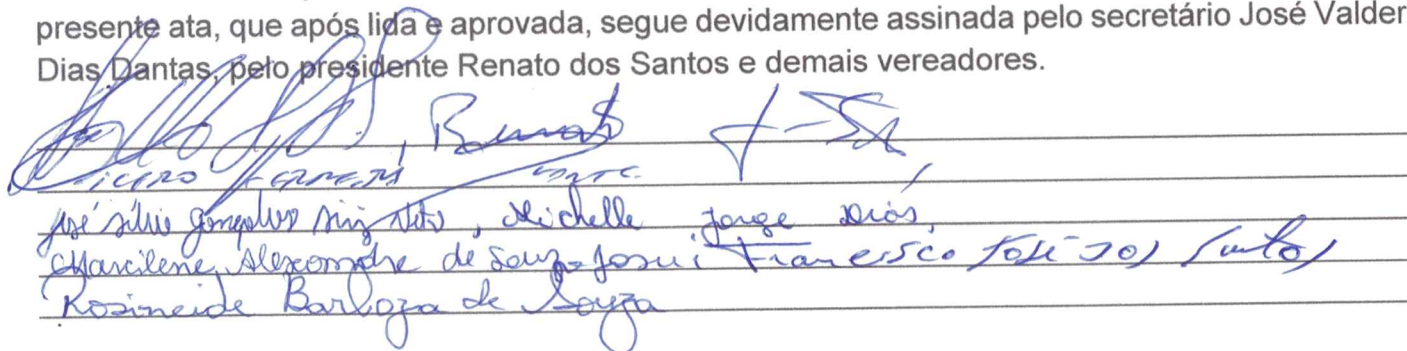 presente ata, que após lida e aprovada, segue devidamente assinada pelo secretário José Valder
Dias Dantas, pelo presidente Renato dos Santos e demais vereadores.
Renato
José Silvio Gonçalves Neto, Michelle Jorge Dias,
Marcilene Alexandre de Souza Josui Francisco José dos Santos
Rosineide Barboza de Souza